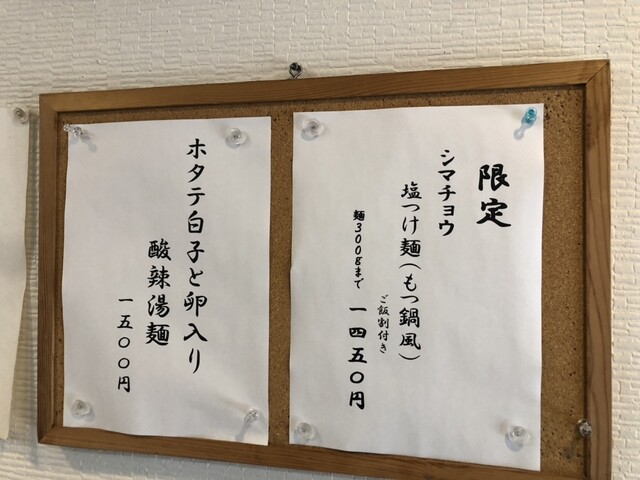 限定
シマチョウ
塩つけ麺(もつ鍋風)
ご飯割付き
麺300gまで 一四五〇円
ホタテ白子と卵入り
酸辣湯麺
一五〇〇円